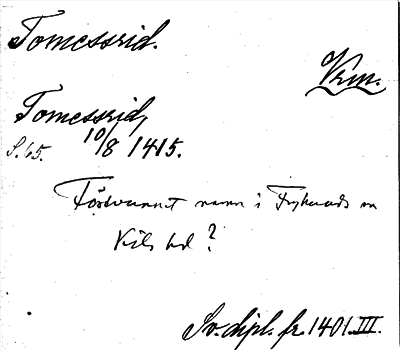 Tomessrid.
Vrm.
Tomessrid,
10/8 1415.
S. 65.
Försvunnet namn i Fryksands el
Kils hd?
Sv. dipl. fr. 1401. III.